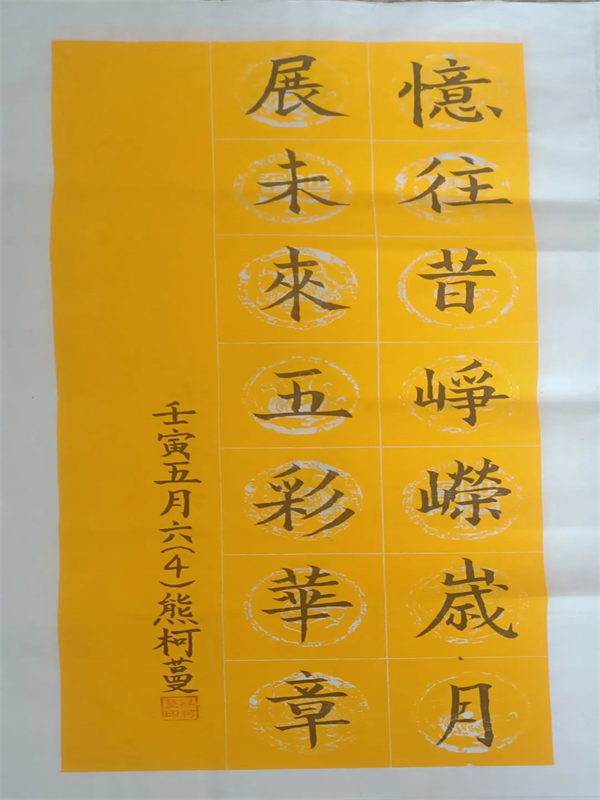 憶往昔崢嶸歲月
展未來五彩華章
壬寅五月六(4)熊柯蔓